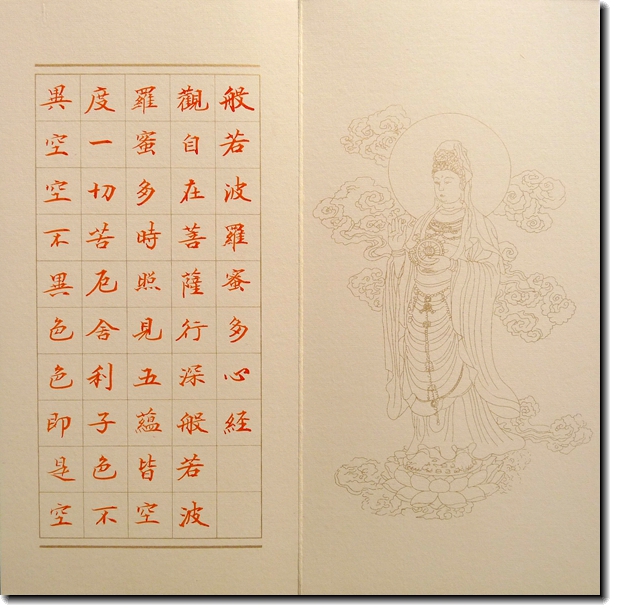 般若波羅蜜多心経
觀自在菩薩行深般若波
羅蜜多時照見五蘊皆空
度一切苦厄舍利子色不
異空空不異色色即是空